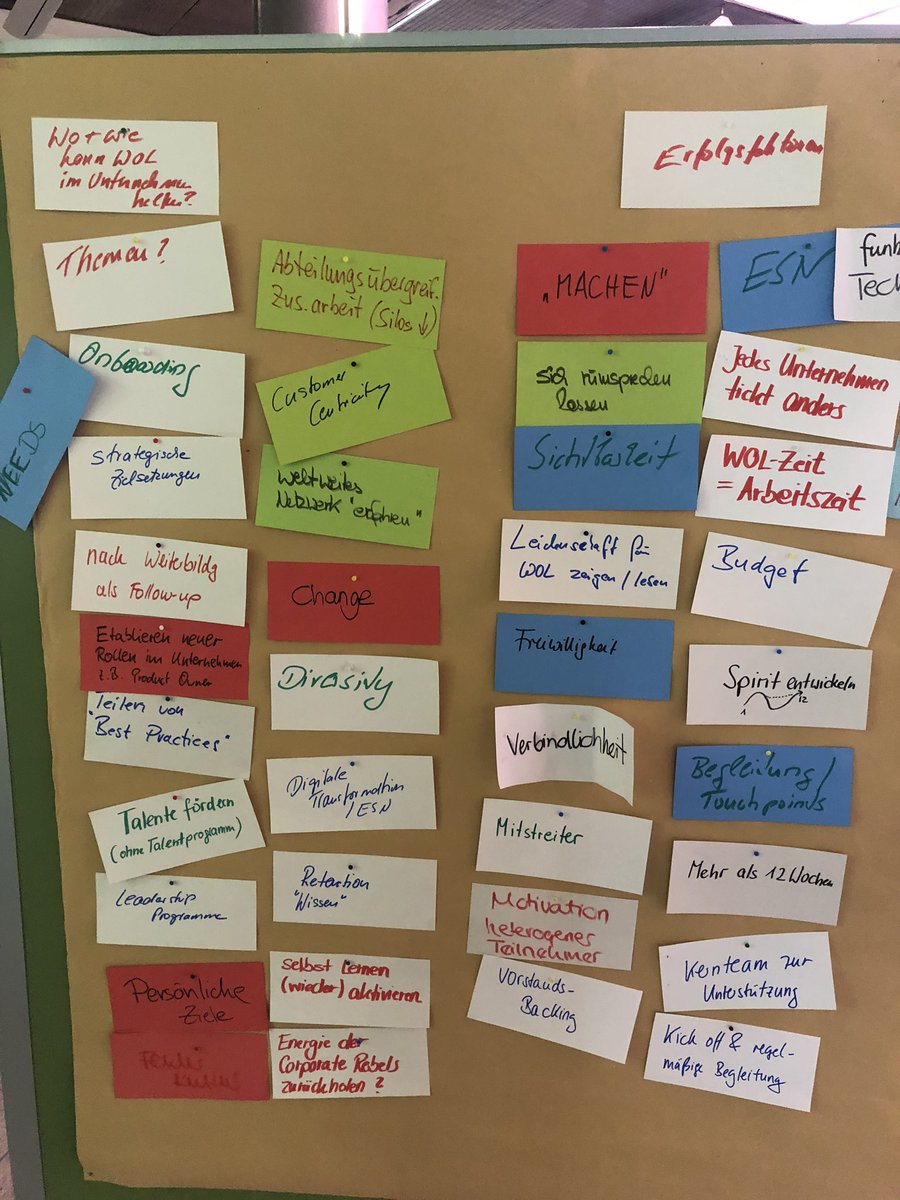 Wo + wie
kann WOL
im Unternehmen
helfen?
Themen?
NEEDS
Onboarding
Strategische
Zielsetzungen
nach Weiterbildg
als Follow-up
Etablieren neuer
Rollen im Unternehmen
z.B. Product Owner
Teilen von
"Best Practices"
Talente fördern
(ohne Talentprogramm)
Leadership
Programme
Persönliche
Ziele
Abteilungsübergreif.
Zus.arbeit (Silos ↓)
Customer
Centricity
Weltweites
Netzwerk "erfahren"
Change
Diversity
Digitale
Transformation
/ ESN
Retention
"Wissen"
Selbst lernen
(wieder) aktivieren
Energie der
Corporate Rebels
zurückholen?
Erfolgsfaktoren
„MACHEN"
sich rumsprechen
lassen
Sichtbarkeit
Leidenschaft für
WOL zeigen / leben
Freiwilligkeit
Verbindlichkeit
Mitstreiter
Motivation
heterogener
Teilnehmer
Vorstands-
Backing
ESN
funk
Tech
Jedes Unternehmen
tickt anders
WOL-Zeit
= Arbeitszeit
Budget
Spirit entwickeln
1 12
Begleitung /
Touchpoints
Mehr als 12 Wochen
Kernteam zur
Unterstützung
Kick off & regel-
mäßige Begleitung